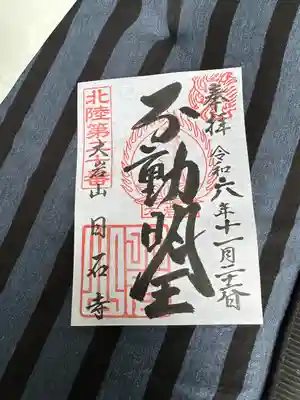 奉拝 令和六年十一月二十三日
不動明王
北陸第
大岩山 日石寺